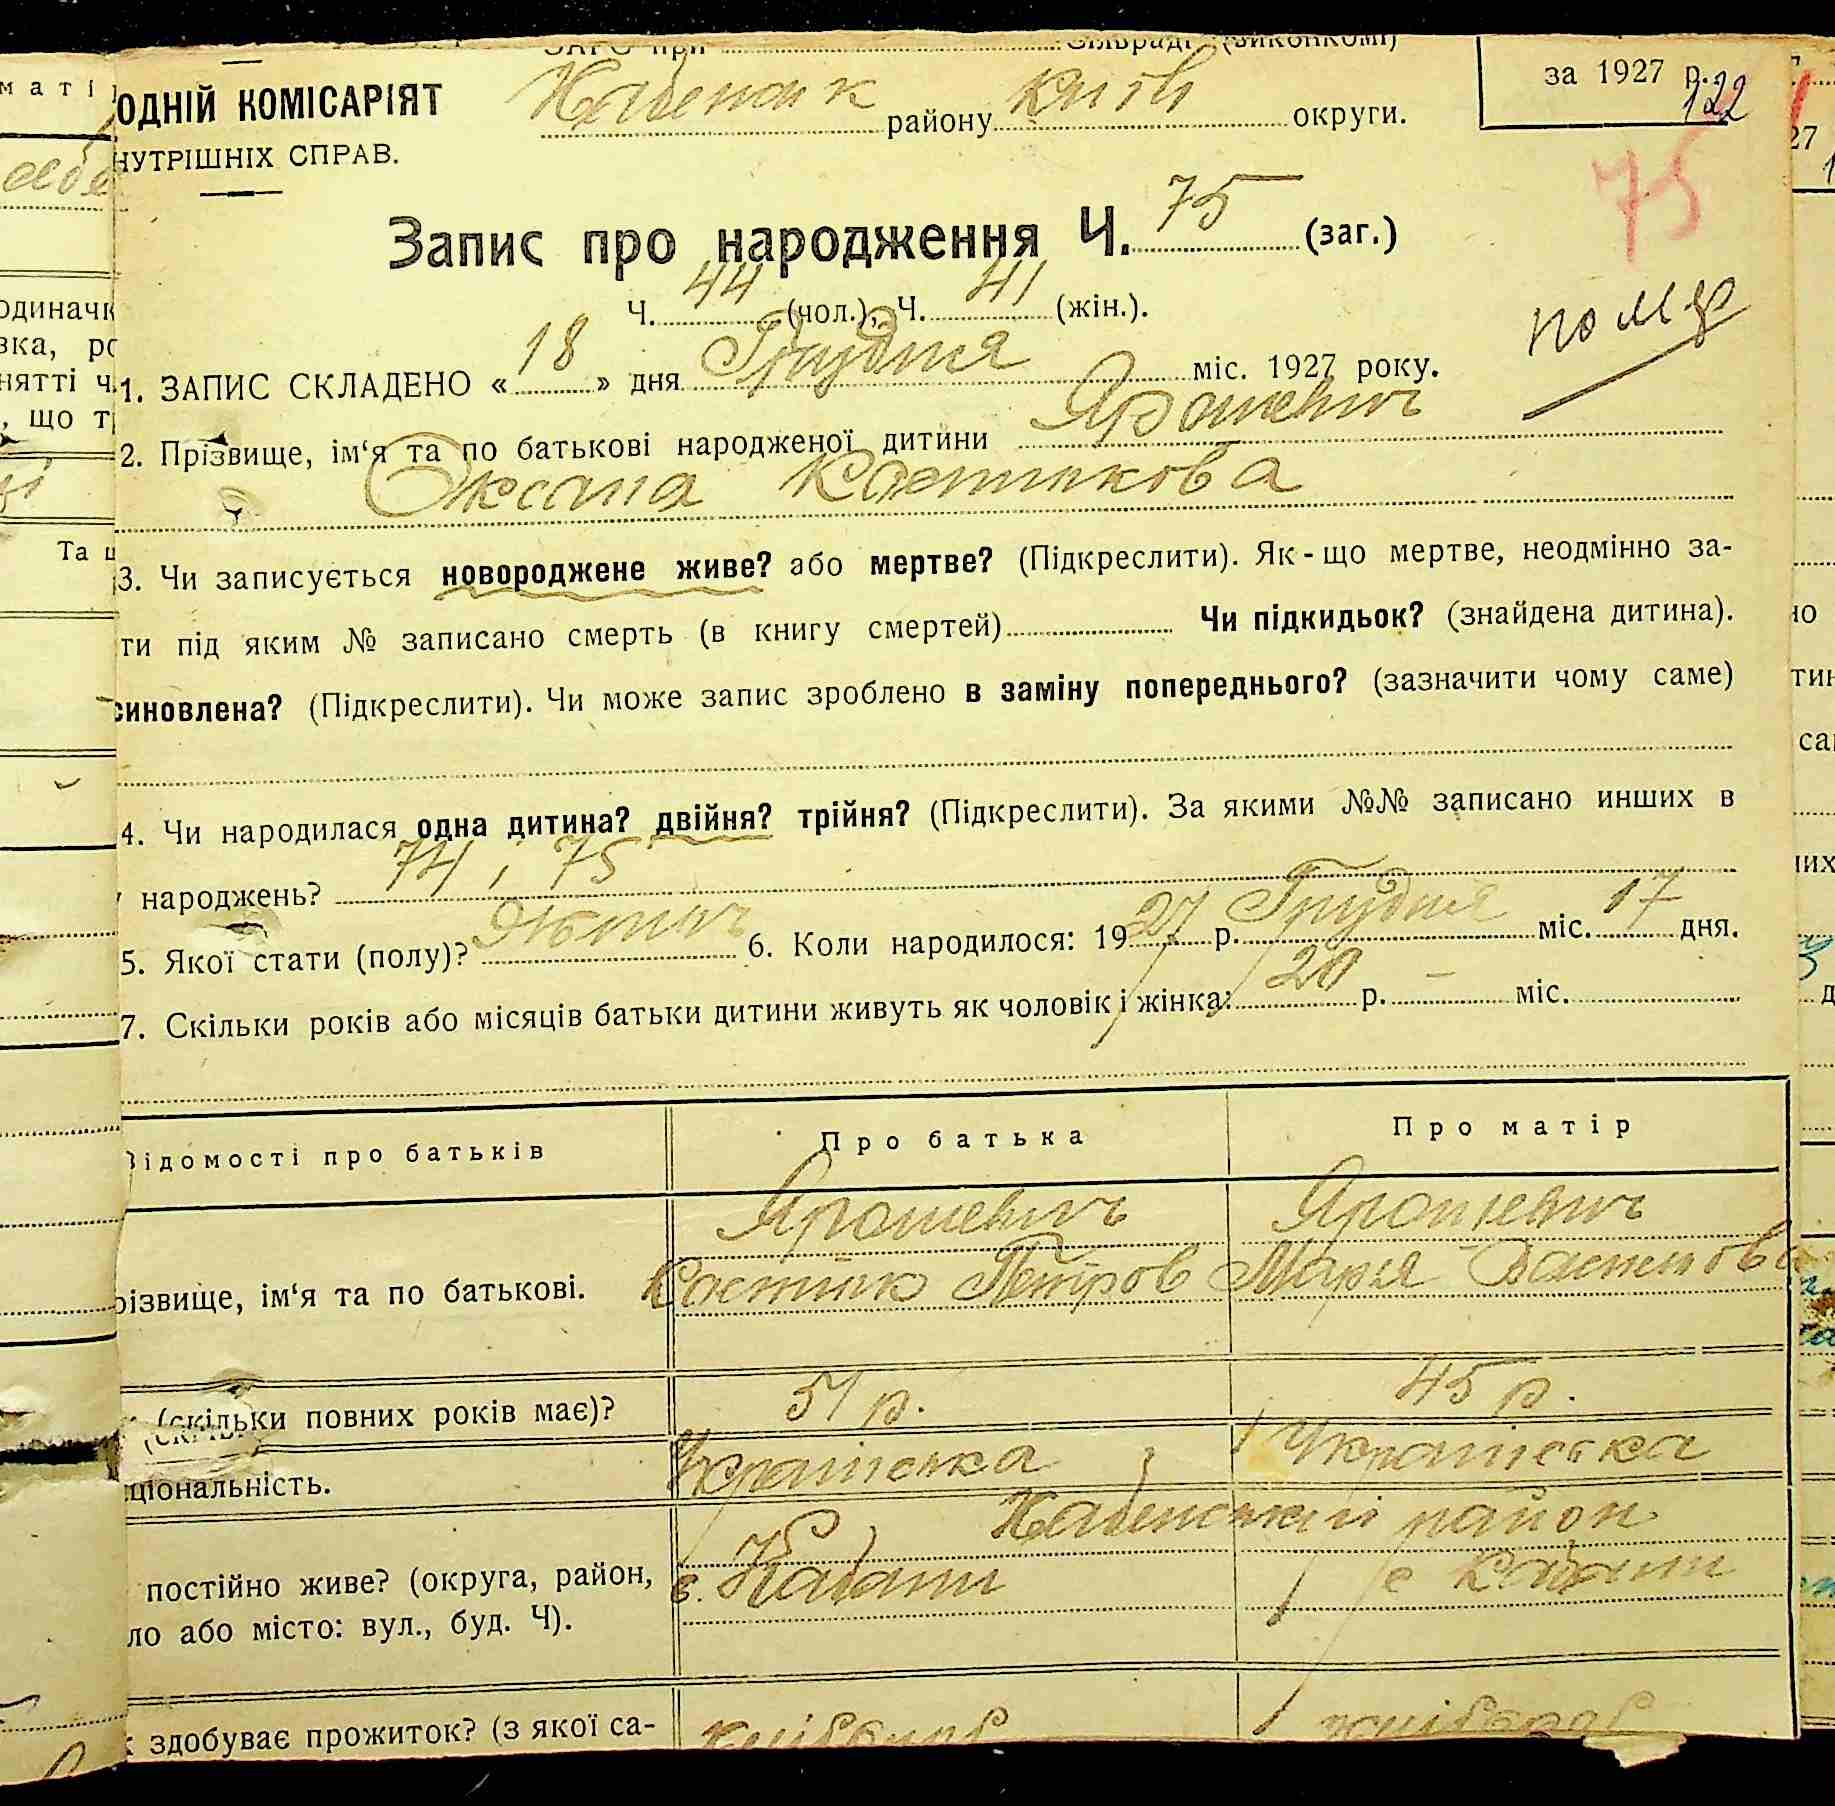 за 1927 р.
122
ОДНІЙ КОМІСАРІЯТ
району Київ округи.
НУТРІШНІХ СПРАВ.
75
Запис про народження Ч. 75 (заг.)
Ч. 44 (чол.), Ч. 41 (жін.).
помер
1. ЗАПИС СКЛАДЕНО « 18 » дня Грудня міс. 1927 року.
2. Прізвище, ім‘я та по батькові народженої дитини Ярошевич
Оксана Костикова
3. Чи записується новороджене живе? або мертве? (Підкреслити). Як-що мертве, неодмінно за-
ти під яким № записано смерть (в книгу смертей) Чи підкидьок? (знайдена дитина).
синовлена? (Підкреслити). Чи може запис зроблено в заміну попереднього? (зазначити чому саме)
4. Чи народилася одна дитина? двійня? трійня? (Підкреслити). За якими №№ записано инших в
народжень? 74, 75
5. Якої стати (полу)? 6. Коли народилося: 1927 р. Грудня міс. 17 дня.
7. Скільки років або місяців батьки дитини живуть як чоловік і жінка: 20 р. – міс.
Відомості про батьків Про батька Про матір
Ярошевич Ярошевич
різвище, ім‘я та по батькові. Костик Петров Марія Василова
(скільки повних років має)? 51 р. 45 р.
ціональність. Українська Українська
район
постійно живе? (округа, район, с. Кабани с Кабани
ло або місто: вул., буд. Ч).
здобуває прожиток? (з якої са-